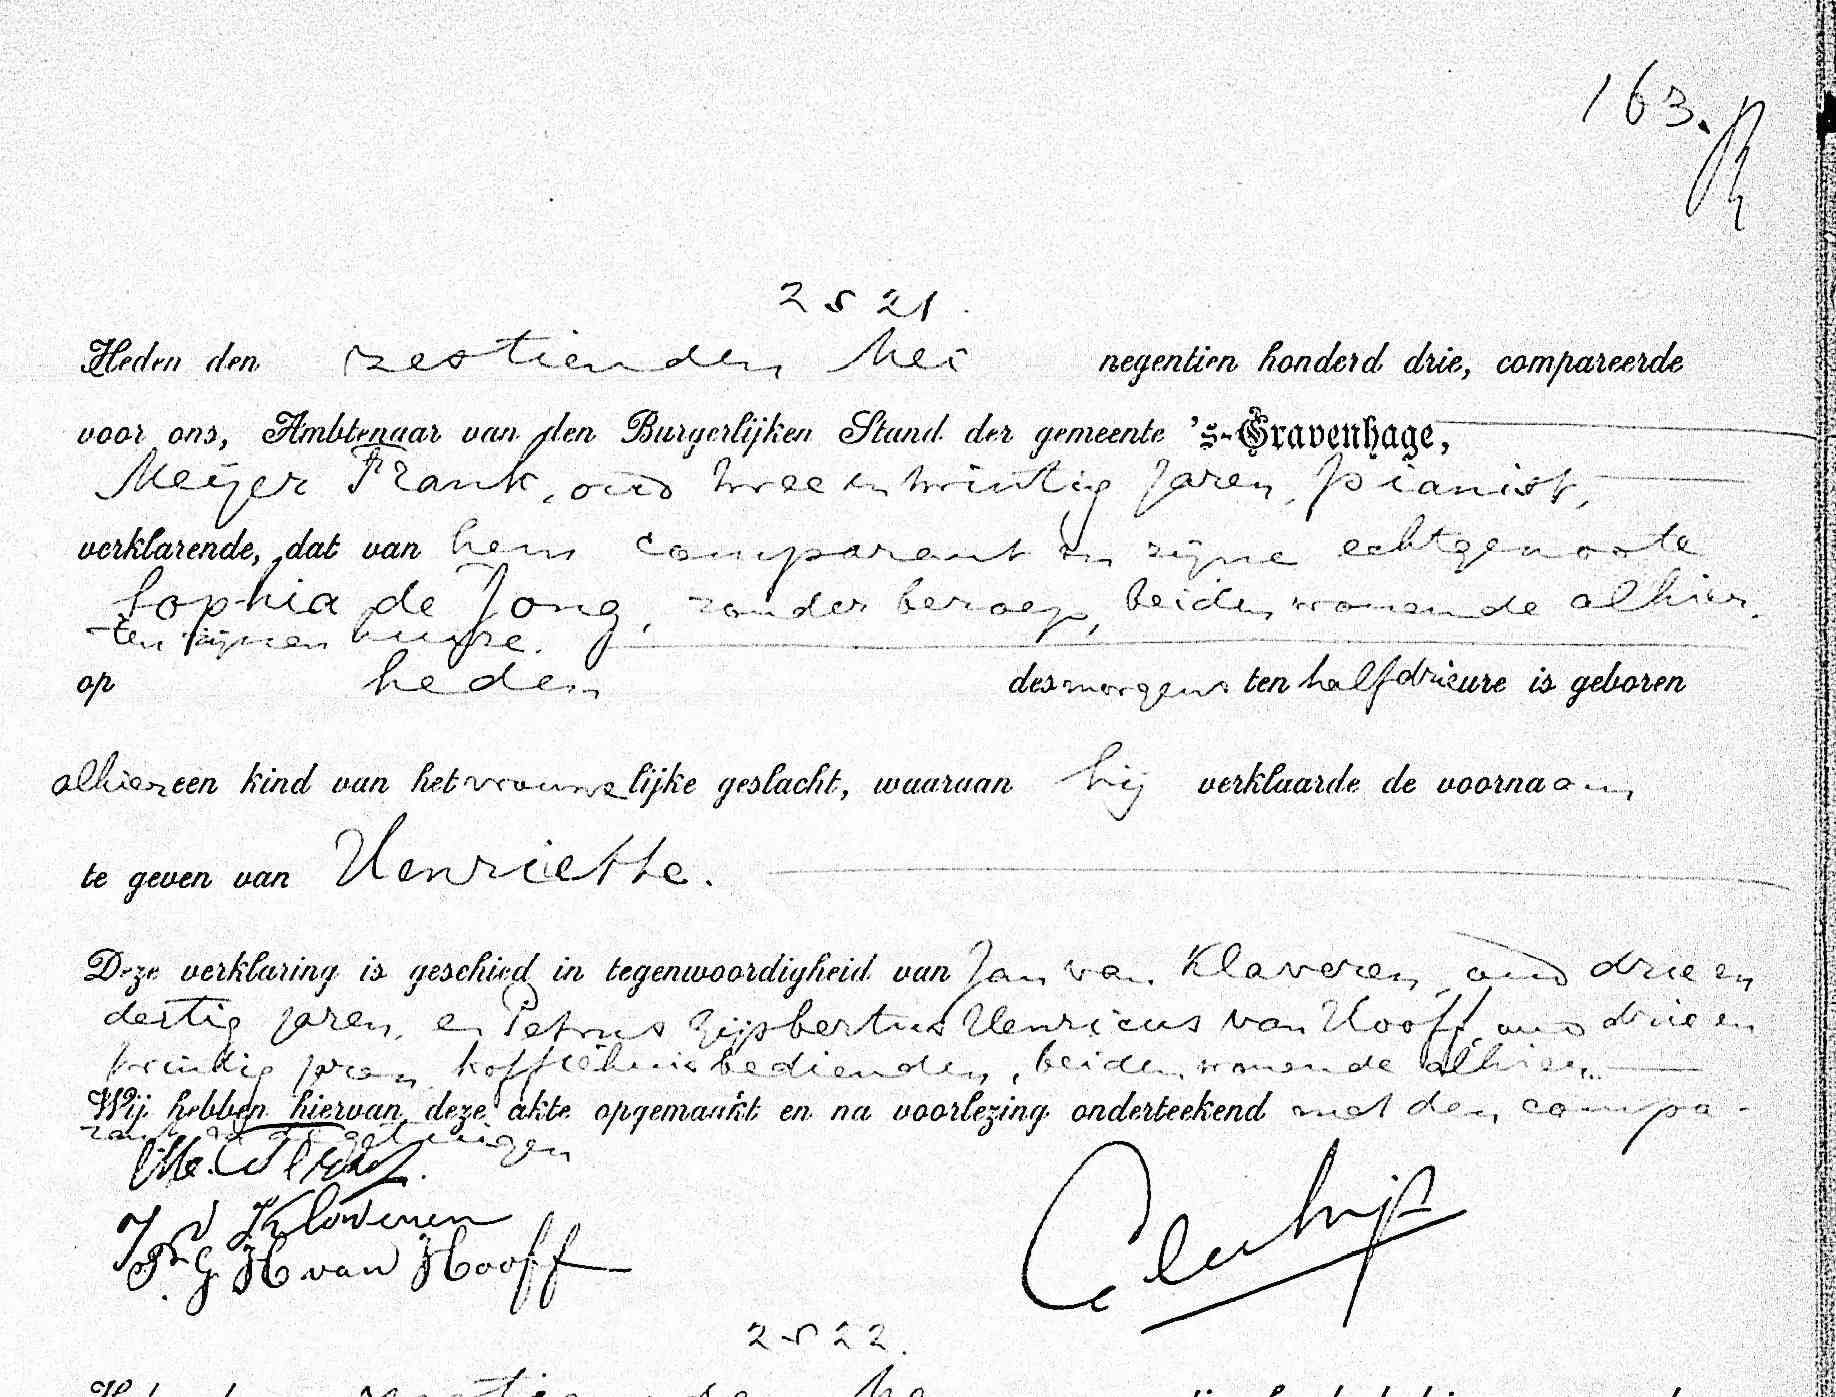 163.
2521.
Heden den zestienden Mei negentien honderd drie, compareerde
voor ons, Ambtenaar van den Burgerlijken Stand der gemeente 's-Gravenhage,
Meijer Frank, oud twee en twintig jaren, pianist,
verklarende, dat van hem comparant en zijne echtgenoote
Sophia de Jong, zonder beroep, beiden wonende alhier.
ten zijnen huize.
op heden des morgens ten half drie ure is geboren
alhier een kind van het vrouwelijke geslacht, waaraan hij verklaarde de voornaam
te geven van Henriette.
Deze verklaring is geschied in tegenwoordigheid van Jan van Klaveren, oud drie en
dertig jaren, en Petrus Gijsbertus Henricus van Hooff, oud drie en
twintig jaren, koffiehuisbedienden, beiden wonende alhier.
Wij hebben hiervan deze akte opgemaakt en na voorlezing onderteekend met den compa-
rant en de getuigen
J v Klaveren
P. G. H van Hooff
2522.